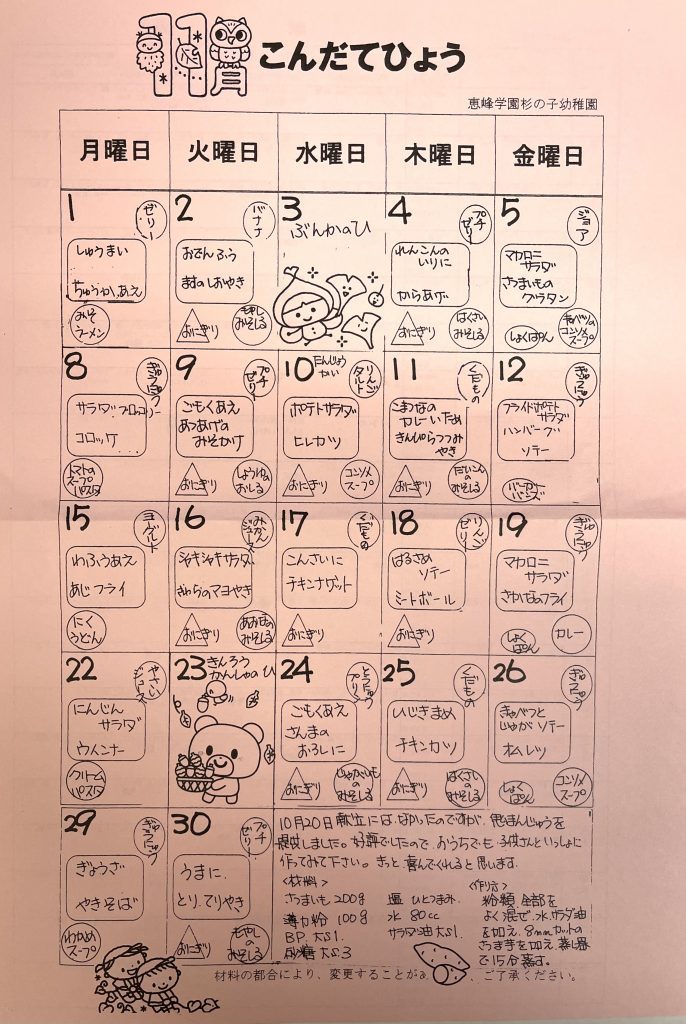 11月 こんだてひょう
恵峰学園杉の子幼稚園
月曜日 火曜日 水曜日 木曜日 金曜日
1
ゼリー
しゅうまい
ちゅうかあえ
みそ
ラーメン
2
バナナ
おでんふう
ますのしおやき
おにぎり
もやし
みそしる
3
ぶんかのひ
4
プチ
ゼリー
れんこんの
いりに
からあげ
おにぎり
はくさい
みそしる
5
ジョア
マカロニ
サラダ
さつまいもの
グラタン
しょくぱん
キャベツの
コンソメ
スープ
8
ぎゅうにゅう
サラダブロッコリー
コロッケ
トマトの
スープ
パスタ
9
プチ
ゼリー
ごもくあえ
あつあげの
みそかけ
おにぎり
しょうゆの
おしる
10
たんじょう
かい
りんご
タルト
ポテトサラダ
ヒレカツ
おにぎり
コンソメ
スープ
11
くだもの
こまつなの
カレーいため
きんぴらつつみ
やき
おにぎり
だいこんの
みそしる
12
ぎゅうにゅう
フライドポテト
サラダ
ハンバーグ
ソテー
バーガー
バンズ
15
ヨーグルト
わふうあえ
あじフライ
にく
うどん
16
みかん
ジュース
シャキシャキサラダ
ぎんだらのマヨやき
おにぎり
みそしる
17
くだもの
こんさいに
チキンナゲット
おにぎり
18
りんご
ゼリー
はるさめ
ソテー
ミートボール
おにぎり
19
ぎゅうにゅう
マカロニ
サラダ
さかなのフライ
しょく
ぱん
カレー
22
やさい
ジュース
にんじん
サラダ
ウインナー
クリーム
パスタ
23
きんろう
かんしゃのひ
24
とうにゅう
プリン
ごもくあえ
さんまの
おろしに
おにぎり
じゃがいもの
みそしる
25
くだもの
ひじきまめ
チキンカツ
おにぎり
はくさいの
みそしる
26
ぎゅうにゅう
きゃべつと
じゃがソテー
オムレツ
しょく
ぱん
コンソメ
スープ
29
ぎゅうにゅう
ぎょうざ
やきそば
わかめ
スープ
30
プチ
ゼリー
うまに
とりてりやき
おにぎり
もやしの
みそしる
10月20日献立には、なかったのですが、鬼まんじゅうを
提供しました。好評でしたので、おうちでも子供さんといっしょに
作ってみて下さい。きっと喜んでくれると思います。
<材料>
さつまいも 200g
薄力粉 100g
BP 大さじ1
砂糖 大さじ3
塩 ひとつまみ
水 80cc
サラダ油大さじ1
<作り方>
粉類全部を
よく混ぜ、水、サラダ油
を加え、8mmカットの
さつま芋を加え、蒸し器
で15分蒸す。
材料の都合により、変更することが、ご了承ください。